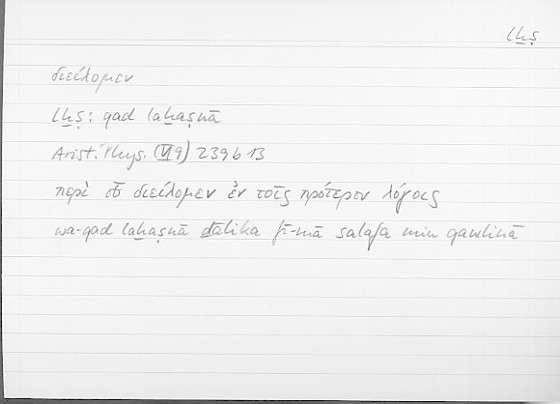 lḫṣ
διείλομεν
lḫṣ: qad laḫaṣnā
Arist. Phys. (VI 9) 239b13
περὶ οὗ διείλομεν ἐν τοῖς πρότερον λόγοις
wa-qad laḫaṣnā ḏālika fī-mā salafa min qawlinā